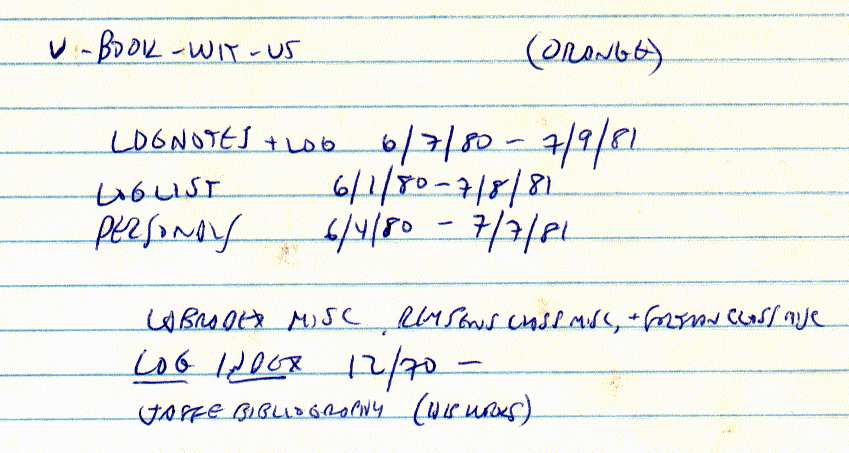 V-BOOK-WIT-US (ORANGE)
LOGNOTES + LOG 6/7/80 - 7/9/81
LOGLIST 6/1/80-7/8/81
PERSONALS 6/4/80 - 7/7/81
MISC, CLASS MISC, + CLASS MISC
LOG INDEX 12/70 -
JAFFE BIBLIOGRAPHY (HIS WORKS)